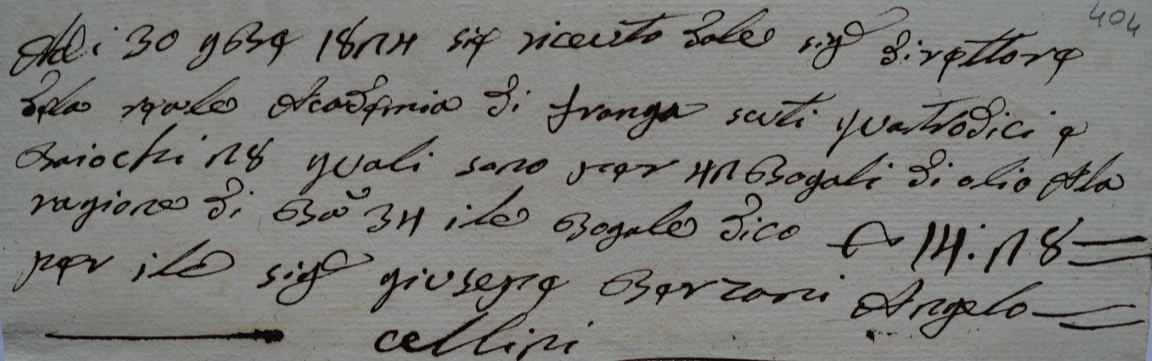 404
Adi 30 9bre 1824 sie riceuto dale sigr direttore
dela reale Academia di franga scuti quatrodici e
Baiochi 28 quali sono per 42 Bogali di olio Ala
ragione di Bai 34 ile Bogale dico 14:28
per ile sigr giusepe Berzani Angelo
cellini